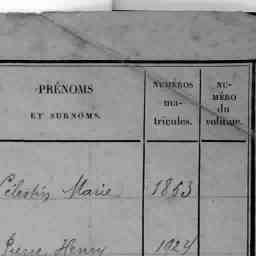 PRÉNOMS
ET SURNOMS.
NUMÉROS
ma-
tricules.
NU-
MÉRO
du
volume.
Célestin Marie 1863
Pierre Henry 1924